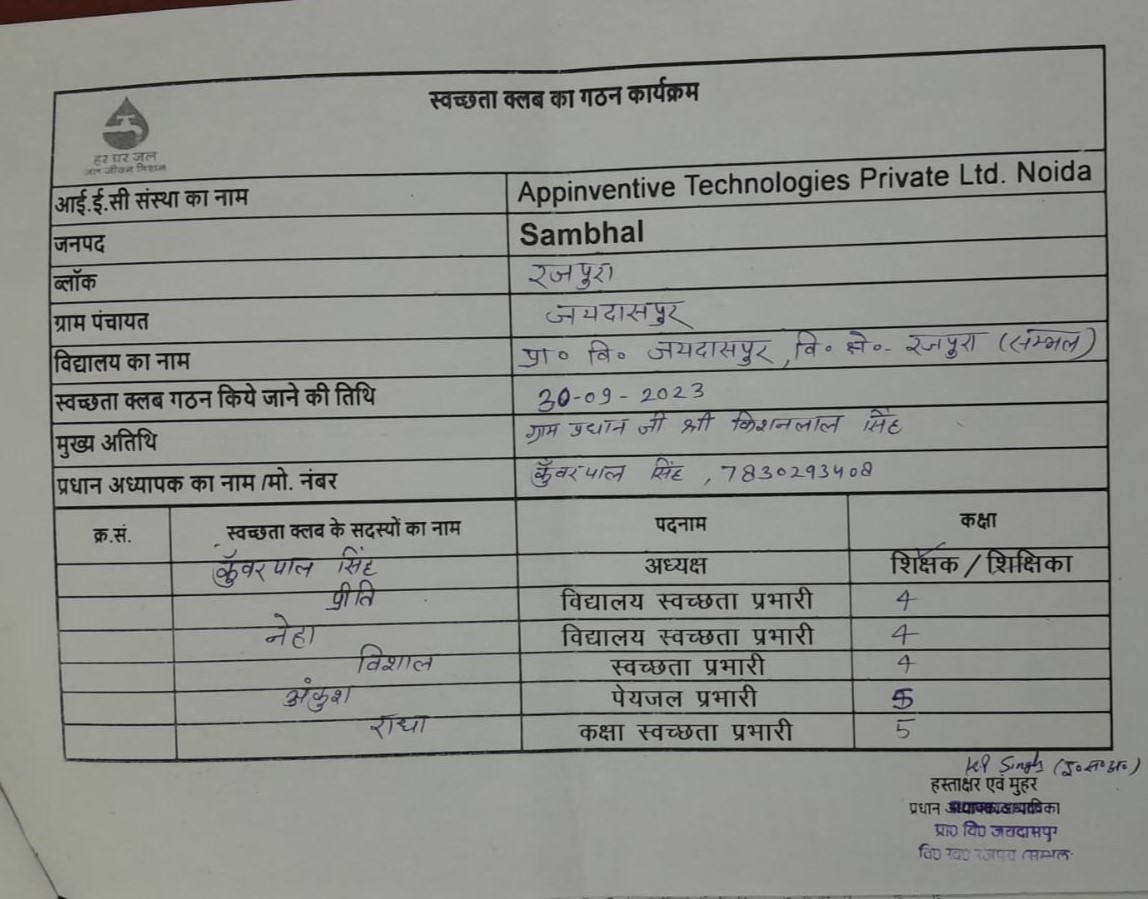 स्वच्छता क्लब का गठन कार्यक्रम
हर घर जल
जल जीवन मिशन
आई.ई.सी संस्था का नाम Appinventive Technologies Private Ltd. Noida
जनपद Sambhal
ब्लॉक रजपुरा
ग्राम पंचायत जयदासपुर
विद्यालय का नाम प्रा० वि० जयदासपुर, वि० क्षे०- रजपुरा (सम्भल)
स्वच्छता क्लब गठन किये जाने की तिथि 30-09-2023
मुख्य अतिथि ग्राम प्रधान जी श्री किशनलाल सिंह
प्रधान अध्यापक का नाम /मो. नंबर कुँवरपाल सिंह, 7830293408
क्र.सं. स्वच्छता क्लब के सदस्यों का नाम पदनाम कक्षा
कुँवरपाल सिंह अध्यक्ष शिक्षक / शिक्षिका
प्रीति विद्यालय स्वच्छता प्रभारी 4
नेहा विद्यालय स्वच्छता प्रभारी 4
विशाल स्वच्छता प्रभारी 4
अंकुश पेयजल प्रभारी 5
राधा कक्षा स्वच्छता प्रभारी 5
KP Singh (इ०स०अ०)
हस्ताक्षर एवं मुहर
प्रधान
प्रा0 वि0 जयदासपुर
वि0 ख0 रजपुरा (सम्भल